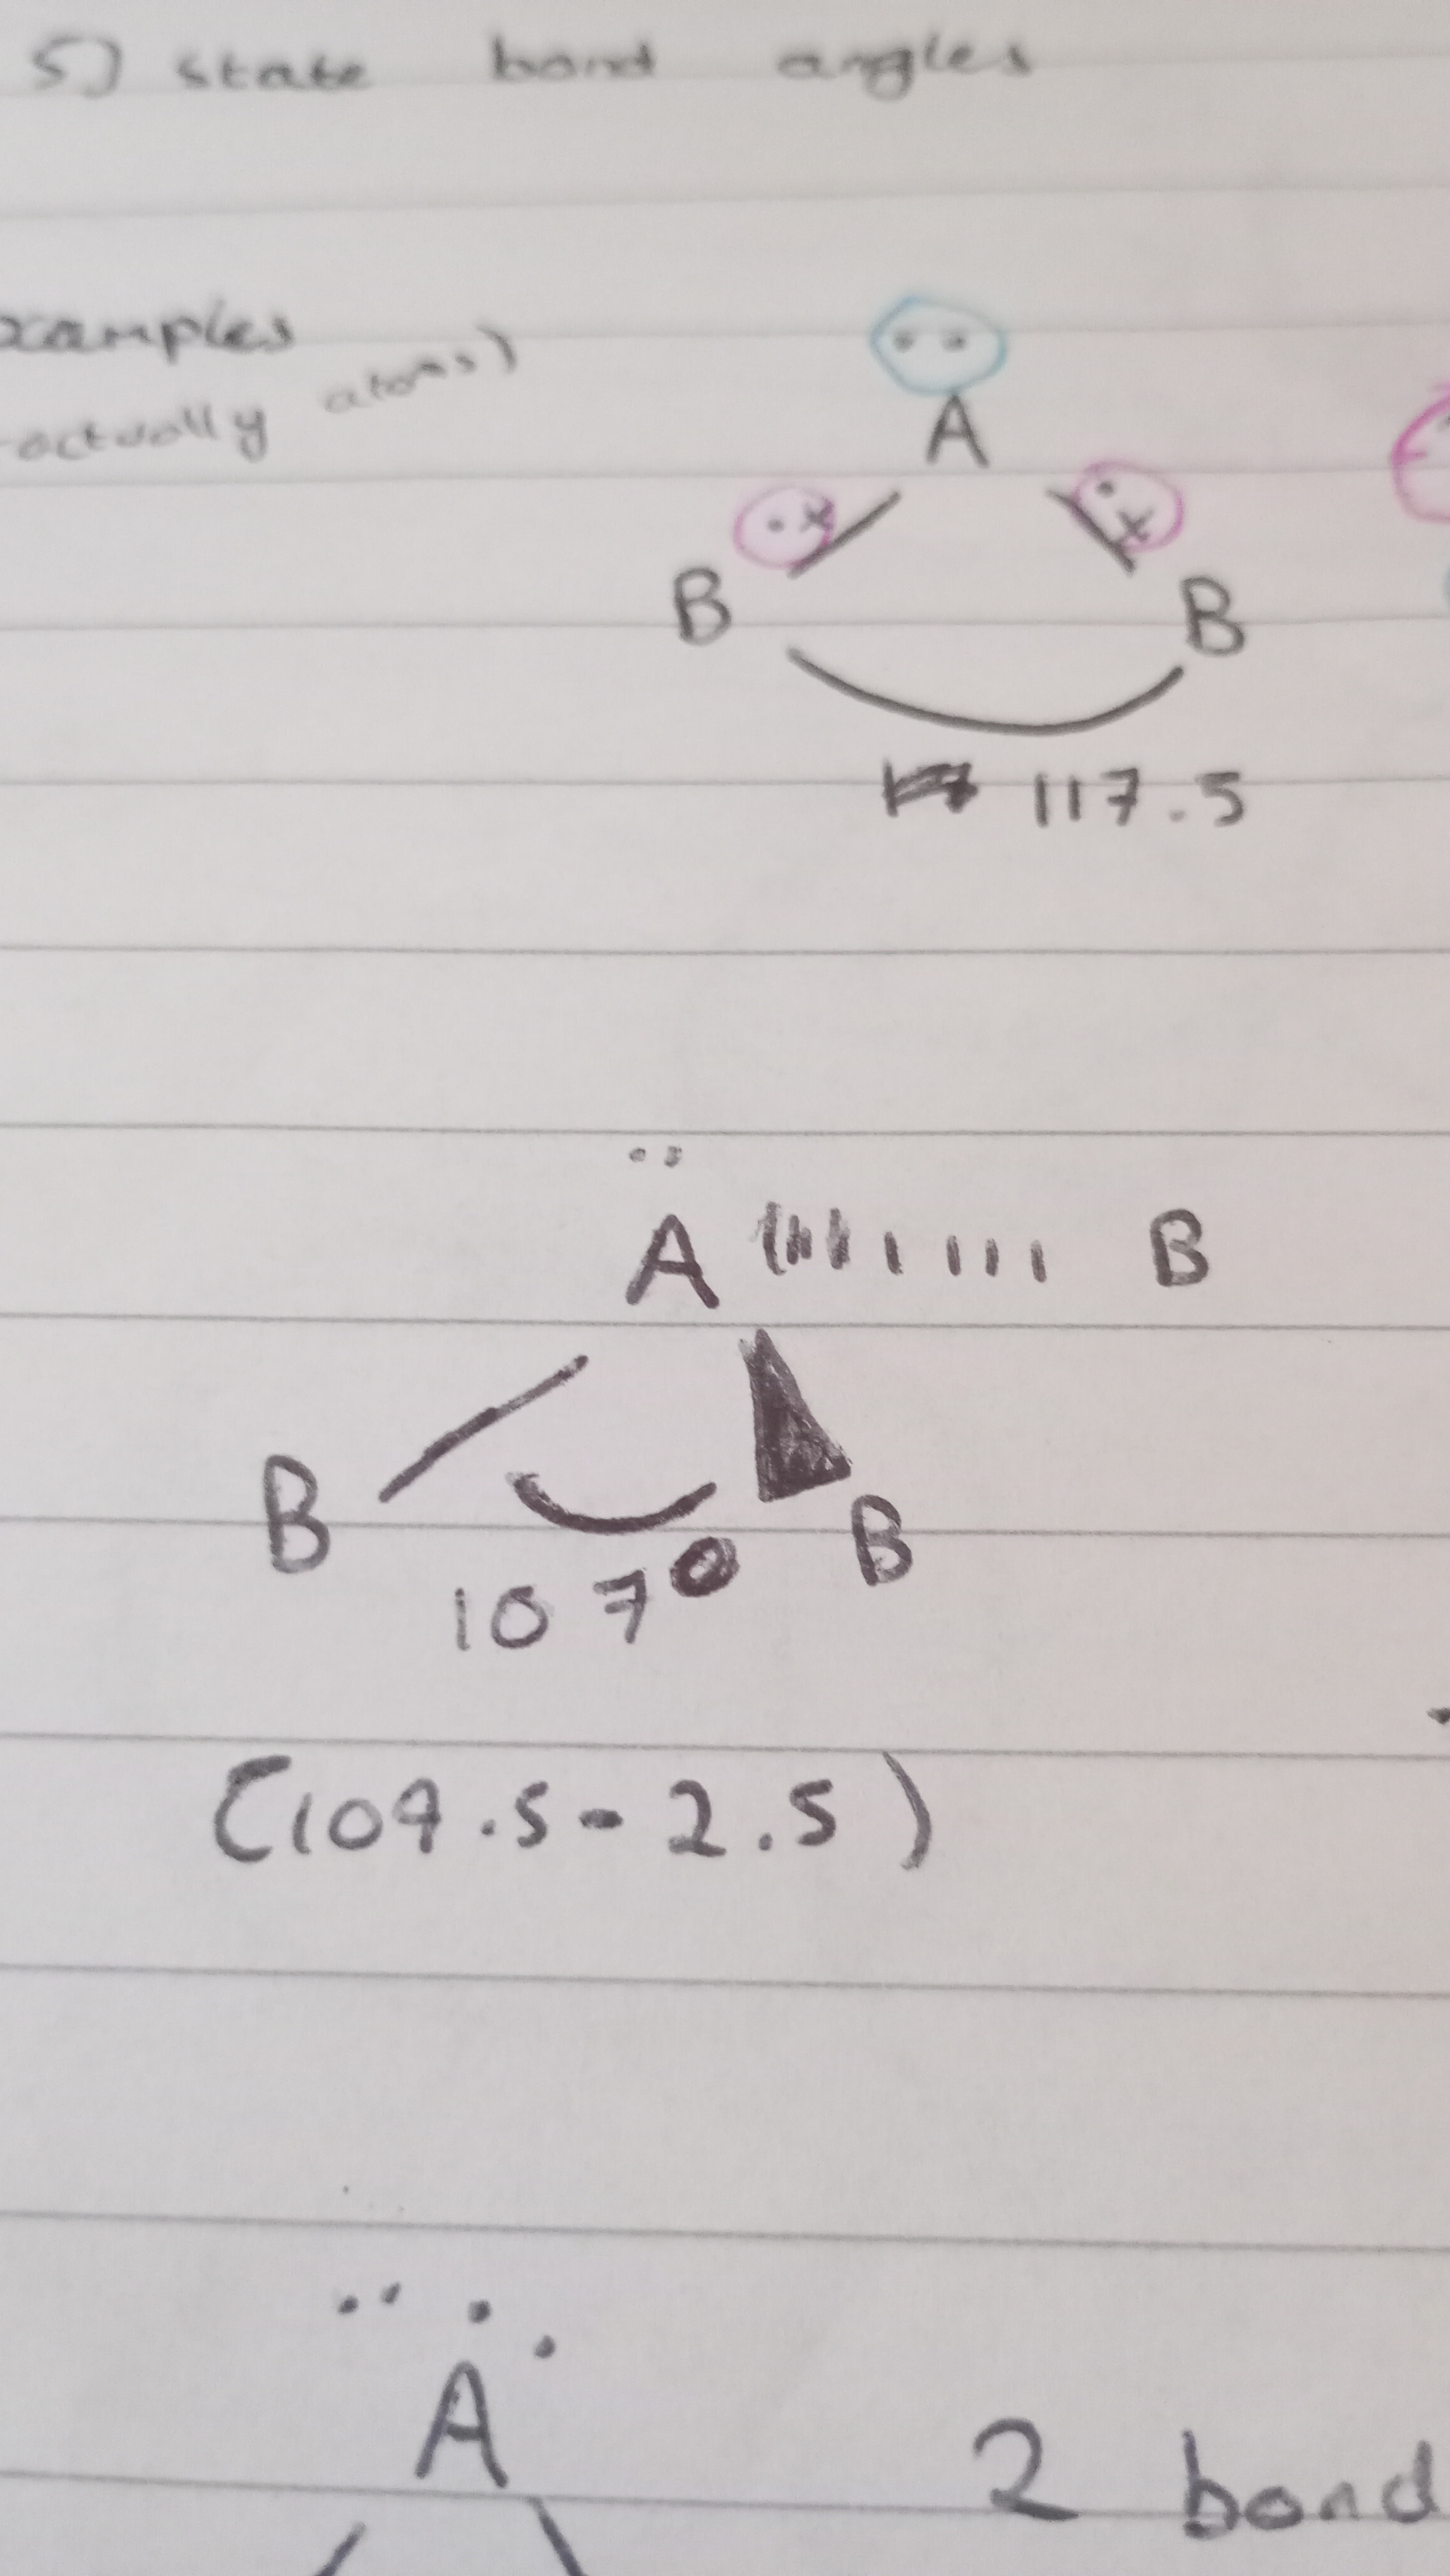 5) state bond angles
xamples
actually atoms)
A
B B
117.5
A B
B B
107°
(109.5-2.5)
A
2 bond